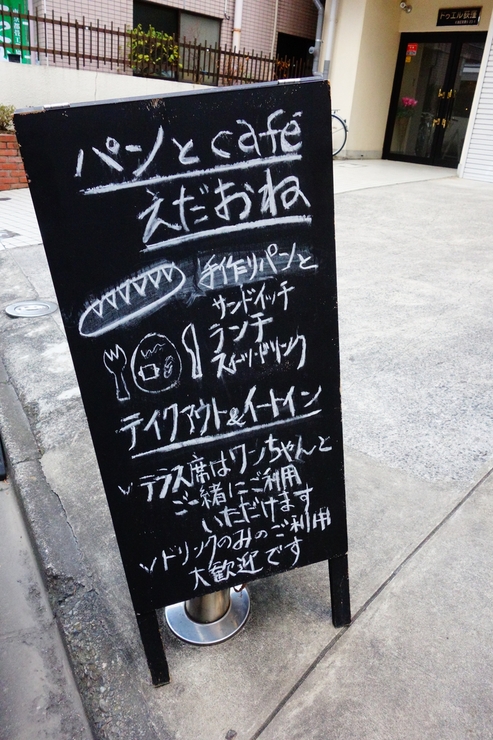 パンとcafé
えだおね
手作りパンと
サンドイッチ
ランチ
スイーツ・ドリンク
テイクアウト&イートイン
✓テラス席はワンちゃんと
ご一緒にご利用
いただけます
✓ドリンクのみのご利用
大歓迎です
トゥエル荻窪